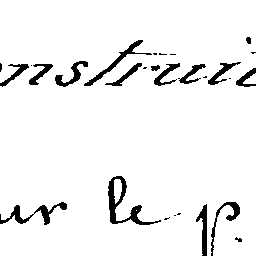 onstruit
ur le p.